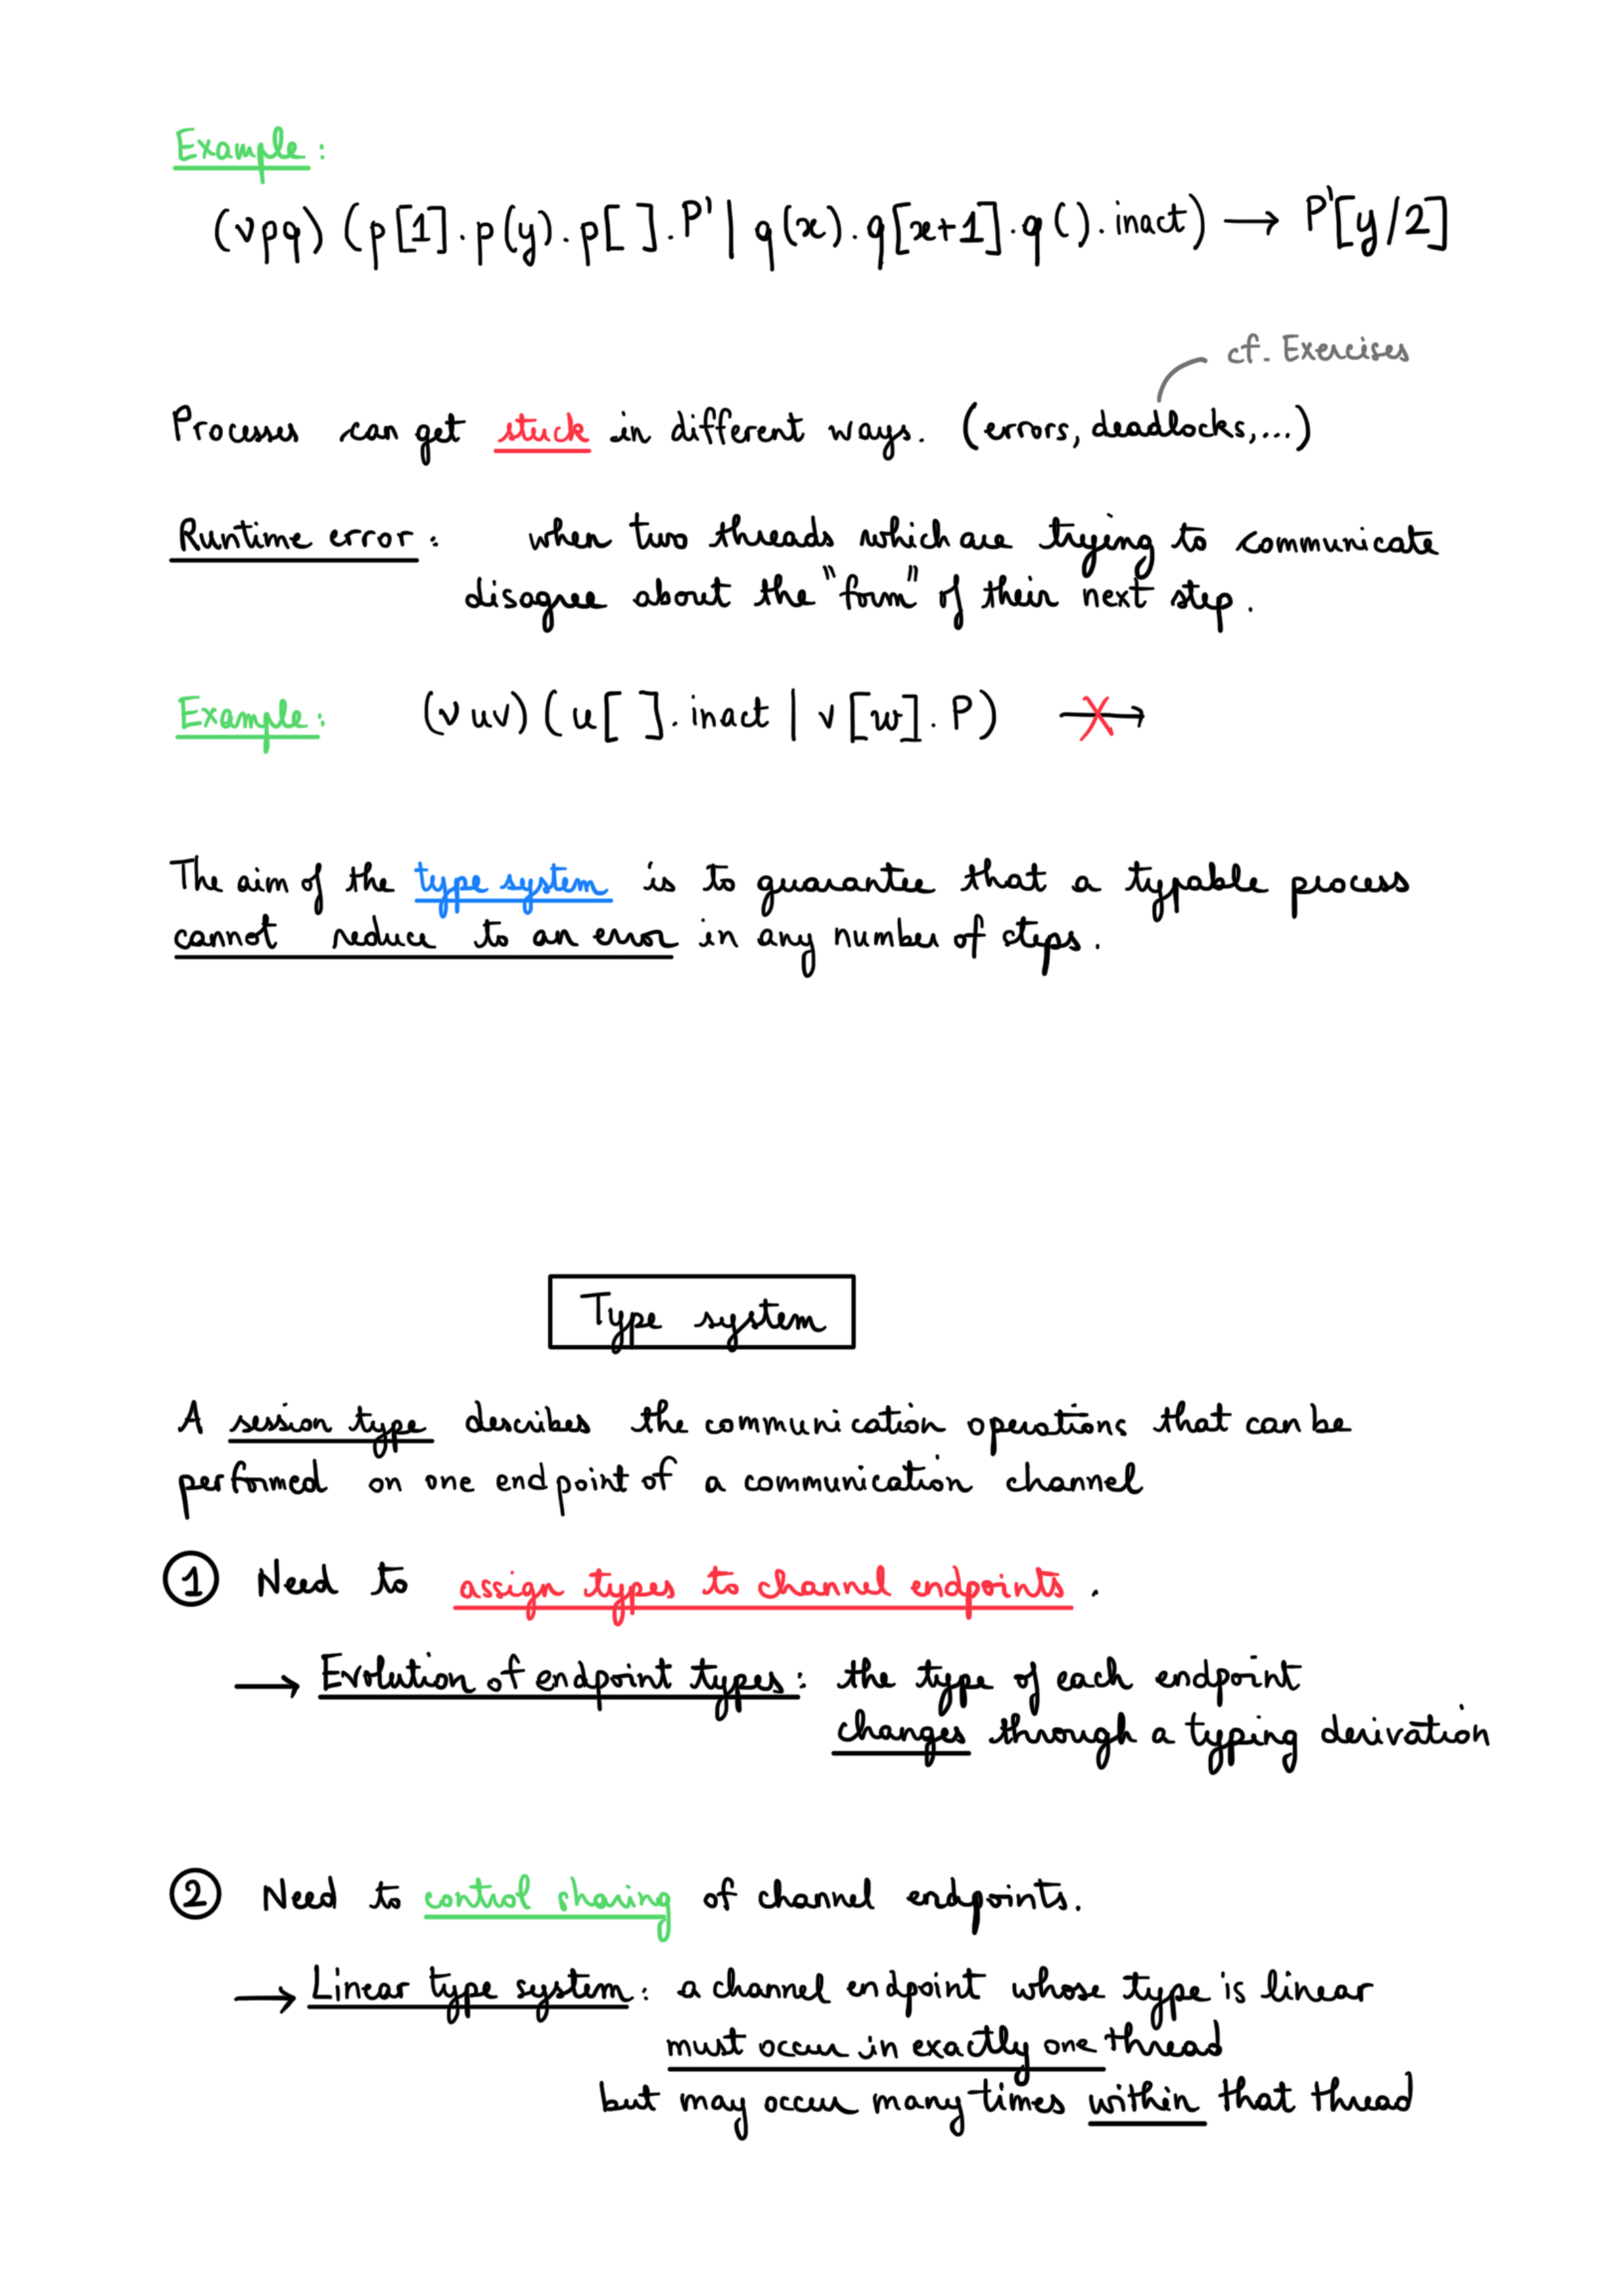 Example :
(ν p q) (p[1] . p(y) . p[ ] . P' | q(x) . q[x+1] . q( ) . inact) → P'[y/2]
cf. Exercises
Processes can get stuck in different ways. (errors, deadlocks, ...)
Runtime error : when two threads which are trying to communicate
disagree about the "form" of their next step .
Example : (ν u v) (u[ ] . inact | v[w] . P) ↛
The aim of the type system is to guarantee that a typable process
cannot reduce to an error in any number of steps .
Type system
A session type describes the communication operations that can be
performed on one endpoint of a communication channel
① Need to assign types to channel endpoints .
→ Evolution of endpoint types : the type of each endpoint
changes through a typing derivation
② Need to control sharing of channel endpoints .
→ Linear type system : a channel endpoint whose type is linear
must occur in exactly one thread
but may occur many times within that thread